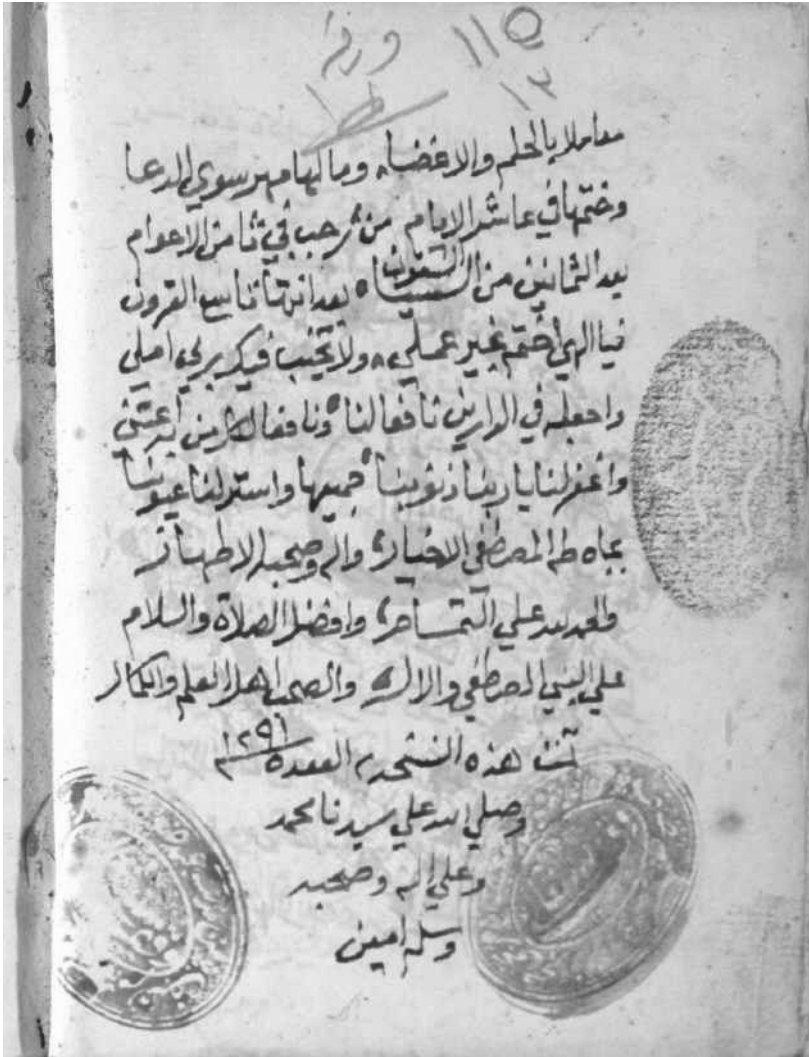 ١١٥ ورقة
١٣
معاملا بالحلم والاغضاء وما لها من سوي الدعا
وختمها في عاشر الايام من رجب في ثامن الاعوام
بعد الثمانين من السنينا بعد انتها تاسع القرون
فيا الهي اختم بخير عملي ولا تخيب فيك ربي املي
واجعله في الدارين نافعا لنا ونافعا لكل من
واغفر لنا يا ربنا ذنوبنا جميعها واستر لنا عيوبنا
بجاه طه المصطفي الاخيار واله وصحبه الاطهار
والحمد لله علي التمام وافضل الصلاة والسلام
علي النبي المصطفي والال والصحب اهل العلم والكمال
تمت هذه النسخة القعدة ١٢٩١
وصلي الله علي سيدنا محمد
وعلي اله وصحبه
وسلم امين